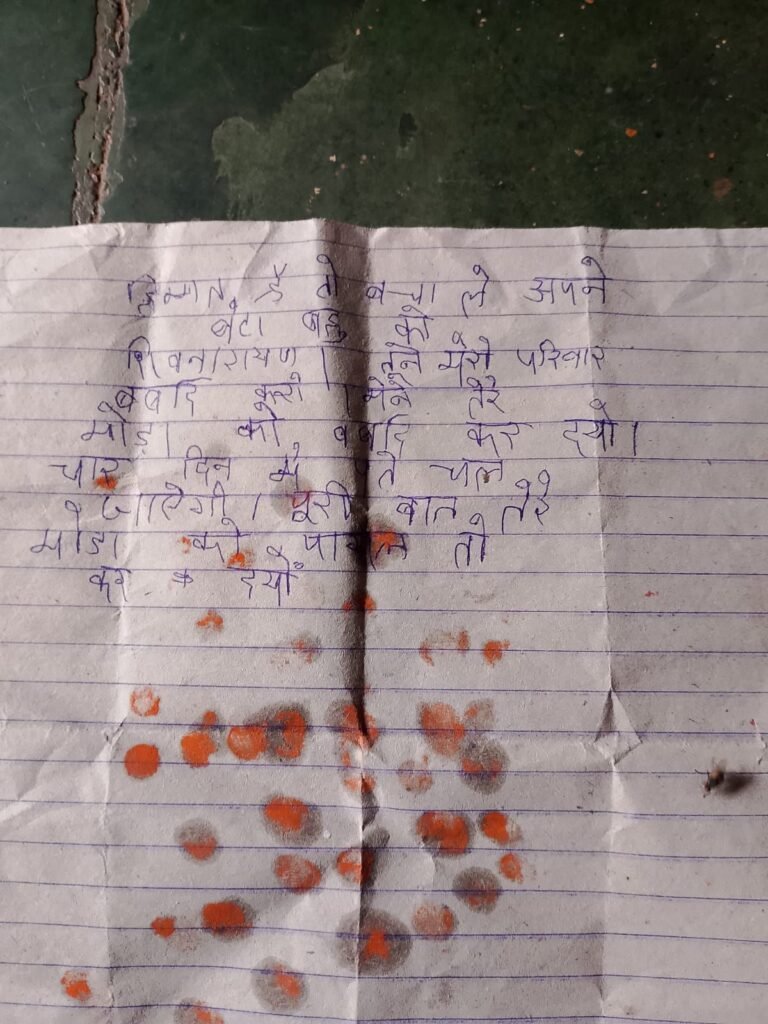 हिम्मत है तो बचा ले अपने
बेटा बहू को
शिवनारायण। मेरो परिवार
बर्बाद करो मैंने तेरे
मोड़ा को बर्बाद कर दयो।
चार दिन में पते चल
जाऐगी। पूरी बात तेरे
मोडा को पागल तो
कर दयों